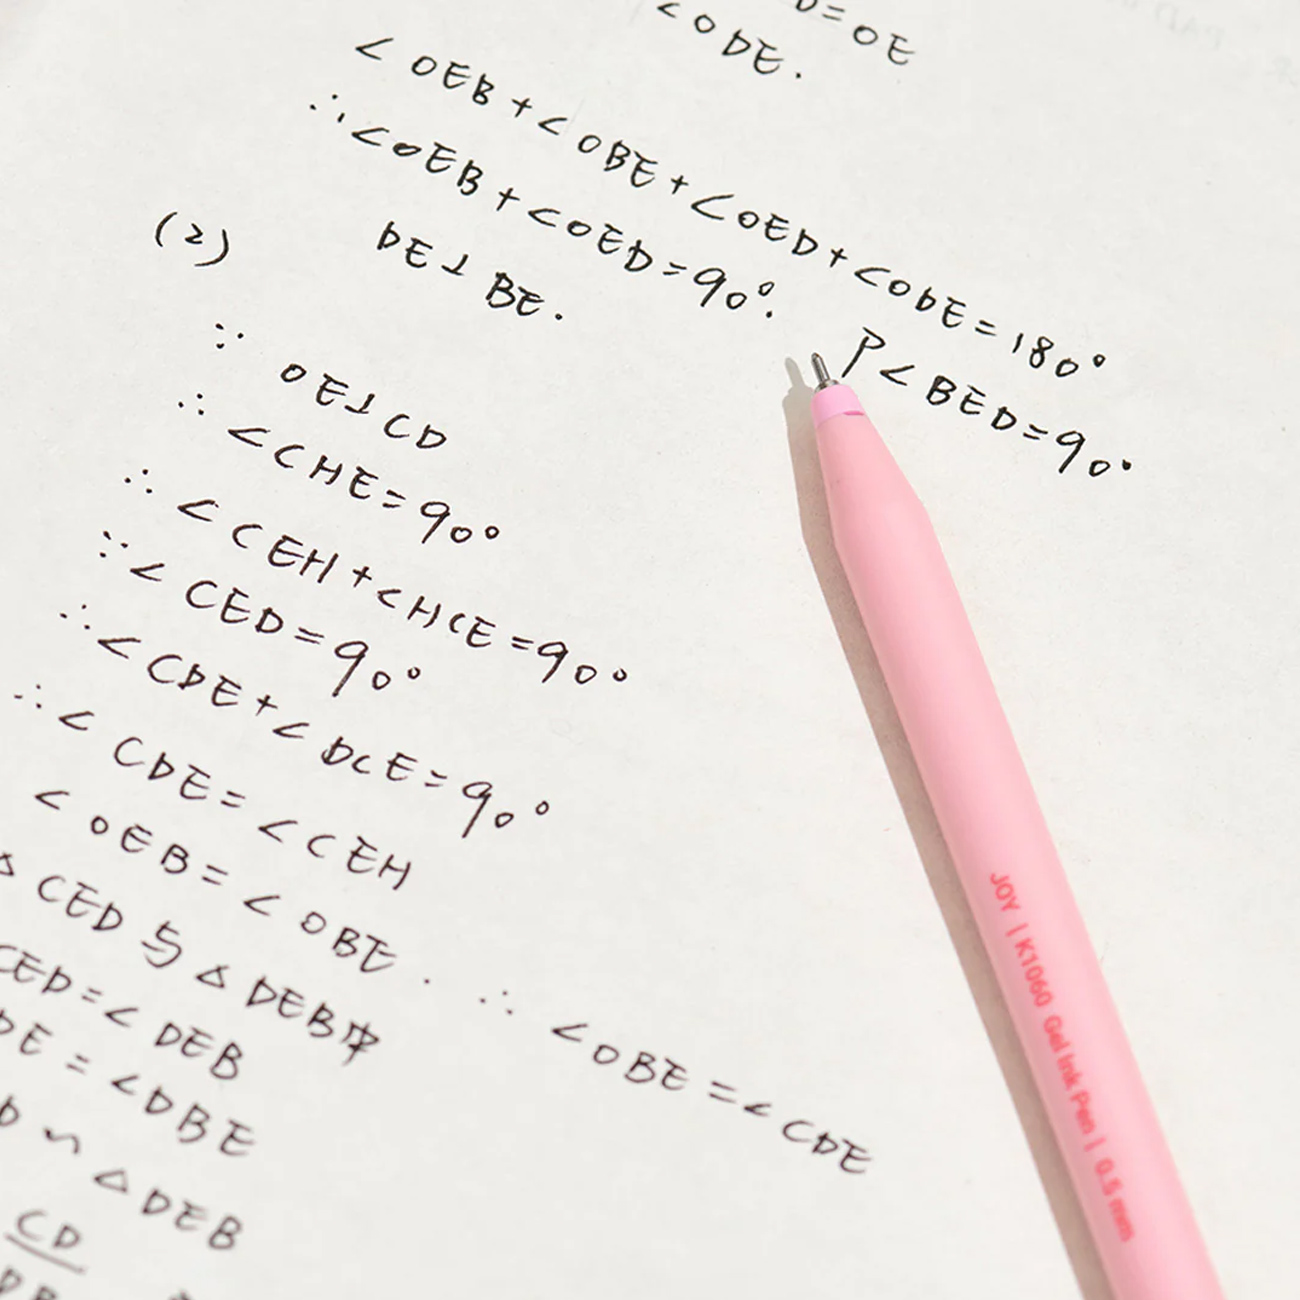 D=OE
<ODE.
<OEB+<OBE+<OED+<ODE=180°
∴<OEB+<OED=90°. 即<BED=90°
DE⊥BE.
(2)
∵ OE⊥CD
∴ <CHE=90°
∴ <CEH+<HCE=90°
∵<CED=90°
∴<CDE+<DCE=90°
∴<CDE=<CEH
<OEB=<OBE. ∴ <OBE=<CDE
△CED与△DEB中
CED=<DEB
DE=<DBE
D∽△DEB
CD
DB
JOY | K1060 Gel Ink Pen | 0.5 mm